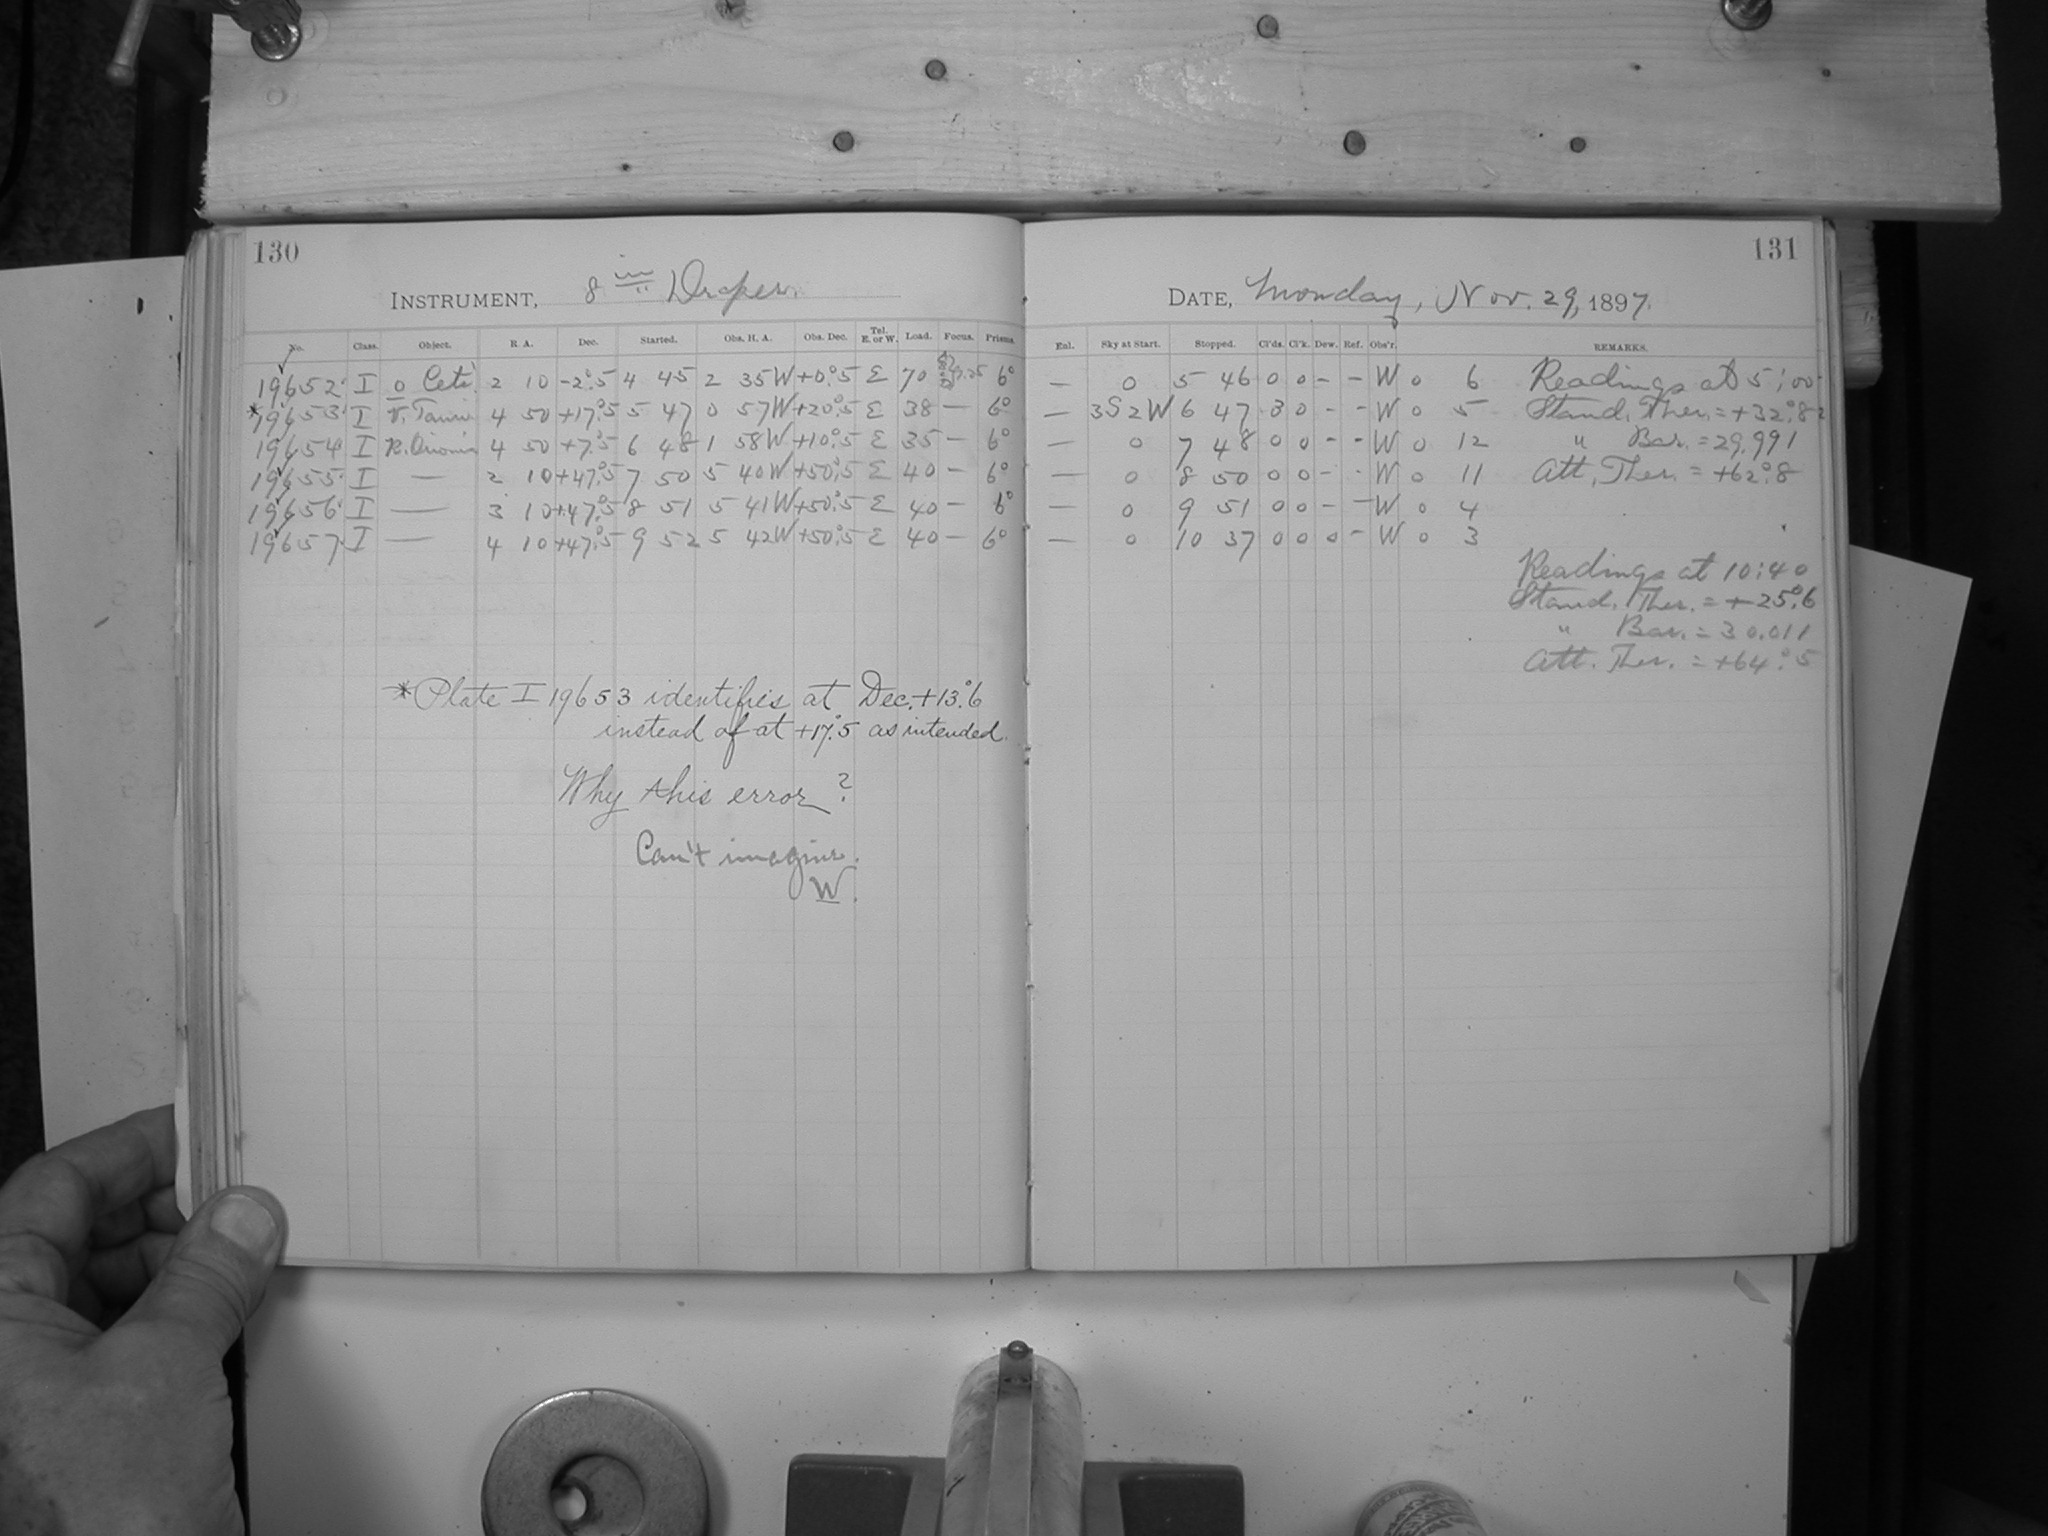 130
INSTRUMENT, 8 in Draper.
No. Class. Object. R A. Dec. Started. Obs. H. A. Obs. Dec. Tel. E. or W. Load. Focus. Prisms.
19652 I o Ceti 2 10 -2°.5 4 45 2 35W +0°.5 E 70 6°
*19653 I V. Tauri 4 50 +17°.5 5 47 0 57W +20°.5 E 38 — 6°
19654 I R. Orionis 4 50 +7°.5 6 48 1 58W +10°.5 E 35 — 6°
19655 I — 2 10 +47°.5 7 50 5 40W +50°.5 E 40 — 6°
19656 I — 3 10 +47°.5 8 51 5 41W +50°.5 E 40 — 6°
19657 I — 4 10 +47°.5 9 52 5 42W +50°.5 E 40 — 6°
*Plate I 19653 identifies at Dec. +13°.6
instead of at +17°.5 as intended.
Why this error?
Can't imagine.
W.
131
DATE, Monday, Nov. 29, 1897.
Enl. Sky at Start. Stopped. Cl'ds. Cl'k. Dew. Ref. Obs'r. REMARKS.
— 0 5 46 0 0 - - W 0 6 Readings at 5:00
— 3S2W 6 47 3 0 - - W 0 5 Stand. Ther. = +32°.8
— 0 7 48 0 0 - - W 0 12 " Bar. = 29.991
— 0 8 50 0 0 - - W 0 11 Att. Ther. = +62°.8
— 0 9 51 0 0 - - W 0 4
— 0 10 37 0 0 0 - W 0 3
Readings at 10:40
Stand. Ther. = +25°.6
" Bar. = 30.011
Att. Ther. = +64°.5